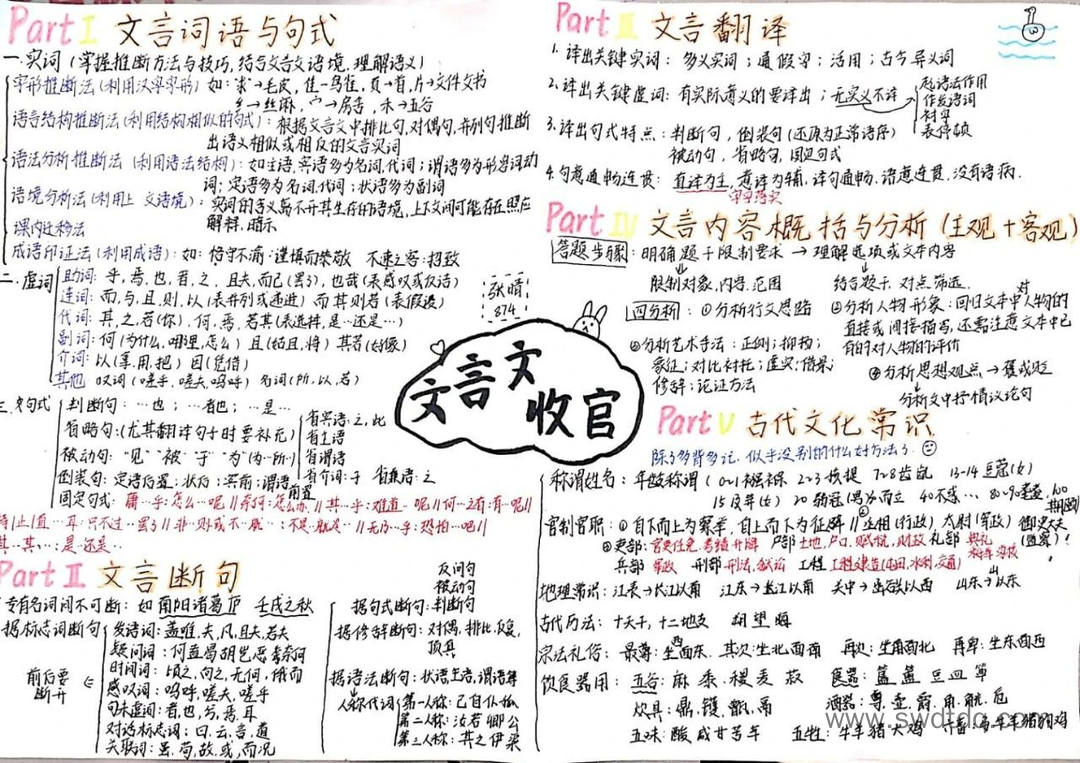 Part I 文言词语与句式
一.实词（掌握推断方法与技巧,结合文言文语境,理解语义）
字形推断法(利用汉字字形) 如:求→毛皮,隹→鸟雀,页→首,片→文件文书
纟→丝麻,宀→房舍,禾→五谷
语言结构推断法(利用结构相似的句式):根据文言文中排比句,对偶句,并列句推断
出语义相似或相反的文言实词
语法分析推断法(利用语法结构):如主语,宾语多为名词,代词;谓语多为形容词动
词;定语多为名词,代词;状语多为副词
语境分析法(利用上 文语境):实词的含义离不开其生存的语境,上下文间可能存在照应
解释,暗示
课内迁移法
成语印证法(利用成语):如:恪守不渝:谨慎而恭敬 不速之客:招致
二.虚词
助词:乎,焉,也,者,之,且夫,而已(罢了),也哉(表感叹或反语)
连词:而,与,且,则,以(表并列或递进) 而其则若(表假设)
代词:其,之,若(你),何,焉,若其(表选择,是…还是…)
副词:何(为什么,哪里,怎么) 且(姑且,将) 其若(好像)
介词:以(拿,用,把) 因(凭借)
其他 叹词(嗟乎,嗟夫,呜呼) 名词(所,以,若)
张晴
874
三.文句式
判断句:…也;…者也;…是…
省略句:(尤其翻译句子时要补充)
省宾语:之,此
省主语
省谓语
省介词:于 省兼语:之
被动句:"见""被""于""为(为…所…)
倒装句:定语后置;状后;宾前;谓语前置
固定句式:庸…乎:怎么…呢//奈何:怎么办//其…乎:难道…呢//何…之有:有…呢//
特//止//直…耳:只不过…罢了//非…则:或不…就…:不是…就是…//无乃…乎:恐怕…吧//
其…其…:是…还是…
Part II 文言断句
专有名词间不可断:如 南阳诸葛庐 壬戌之秋
据标志词断句
前后要断开
发语词:盖,唯,夫,凡,且夫,若夫
疑问词:何,盍,曷,胡,岂,恶,奢,奈何
时间词:顷之,向之,无何,俄而
感叹词:呜呼,嗟夫,嗟乎
句末虚词:者,也,兮,焉,耳
对话标志词:曰,云,言,道
关联词:虽,苟,故,或,而况
反问句
被动句
据句式断句:判断句
据修辞断句:对偶,排比,反复,
顶真
据语法断句:状语,主语,谓语等
人称代词
第一人称:己自仆孤
第二人称:汝若卿公
第三人称:其之伊渠
文言文
收官
Part III 文言翻译
1.译出关键实词:多义实词;通假字;活用;古今异义词
2.译出关键虚词:有实际意义的要译出;无实义不译
起语法作用
作发语词
衬字
表停顿
3.译出句式特点:判断句,倒装句(还原为正常语序)
被动句,省略句,固定句式
4.句意通畅连贯:直译为主,意译为辅,译句通畅,语意连贯,没有语病.
字字落实
Part IV 文言内容概括与分析(主观+客观)
答题步骤:明确题干限制要求→理解选项或文本内容
限制对象,内容,范围 结合题干,对点筛选.
四分析:①分析行文思路 ②分析人物形象:回归文本中对人物的
直接或间接描写,还需注意文本中已
有的对人物的评价
③分析艺术手法:正侧;抑扬;
象征;对比衬托;虚实;借景;
修辞;论证方法
④分析思想观点→褒或贬
分析文中抒情议论句
Part V 古代文化常识
除了多背多记,似乎没别的什么好方法了.
称谓姓名:年龄称谓(0~1襁褓 2~3孩提 7~8齿龀 13~14豆蔻(女)
15及笄(女) 20弱冠(男) 30而立 40不惑… 80~90耄耋,100
官制官职:①自下而上为察举,自上而下为征辟//②丞相(行政),太尉(军政) 御史大夫
(监察)!
③吏部:官吏任免,考绩升降 户部:土地,户口,赋税,财政 礼部 典礼
兵部 军政 刑部 刑法,狱讼 工程 工程建造(屯田,水利,交通)
地理常识:江表→长江以南 江东→芜江以南 关中→函谷以西 山东→以东
古代历法:十天干,十二地支 朔 望 晦
宗法礼俗:最尊:坐西面东,其次:坐北面南 再次:坐南面北 再卑:坐东面西
饮食器用:五谷:麻 黍 稷 麦 菽 食器:簠 簋 豆 皿
炊具:鼎,镬,甑,鬲 酒器:尊,壶,爵,角,觥,卮
五味:酸咸甘苦辛 五牲:牛羊猪犬鸡
www.swdtdc.com